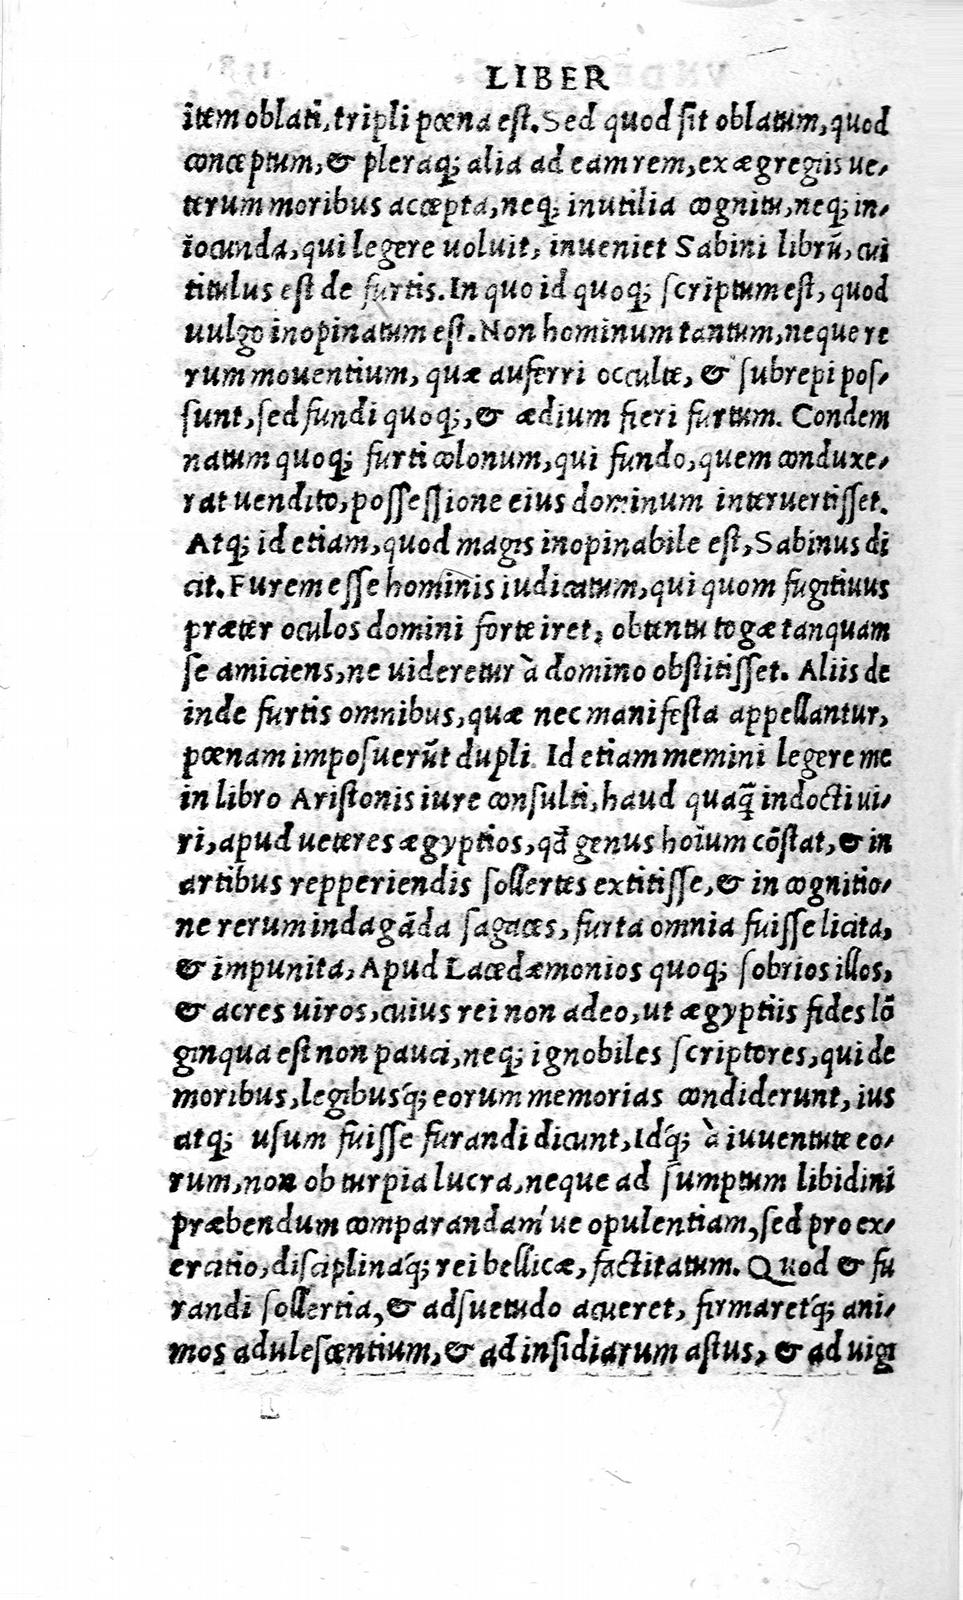 LIBER
item oblati, tripli pœna est. Sed quod sit oblatum, quod
conceptum, & pleraq; alia ad eam rem, ex ægregiis ue-
terum moribus accepta, neq; inutilia cognitu, neq; in-
iocunda, qui legere uoluit, inueniet Sabini librũ, cui
titulus est de furtis. In quo id quoq; scriptum est, quod
uulgo inopinatum est. Non hominum tantum, neque re
rum mouentium, quæ auferri occulte, & subrepi pos-
sunt, sed fundi quoq;, & ædium fieri furtum. Condem
natum quoq; furti colonum, qui fundo, quem conduxe-
rat uendito, possessione eius dominum interuertisset.
Atq; id etiam, quod magis inopinabile est, Sabinus di
cit. Furem esse hominis iudicatum, qui quom fugitiuus
præter oculos domini forte iret, obtentu togæ tanquam
se amiciens, ne uideretur à domino obstitisset. Aliis de
inde furtis omnibus, quæ nec manifesta appellantur,
pœnam imposuerũt dupli. Id etiam memini legere me
in libro Aristonis iure consulti, haud quaq̃ indocti ui-
ri, apud ueteres ægyptios, qđ genus hoĩum cõstat, & in
artibus repperiendis sollertes extitisse, & in cognitio-
ne rerum indagãda sagaces, furta omnia fuisse licita,
& impunita, Apud Lacedæmonios quoq; sobrios illos,
& acres uiros, cuius rei non adeo, ut ægyptiis fides lõ
ginqua est non pauci, neq; ignobiles scriptores, qui de
moribus, legibusq́; eorum memorias condiderunt, ius
atq; usum fuisse furandi dicunt, Idq́; à iuuentute eo-
rum, non ob turpia lucra, neque ad sumptum libidini
præbendum comparandam' ue opulentiam, sed pro ex-
ercitio, disciplinaq́; rei bellicæ, factitatum. Quod & fu
randi sollertia, & adsuetudo acueret, firmaretq́; ani-
mos adulescentium, & ad insidiarum astus, & ad uigi